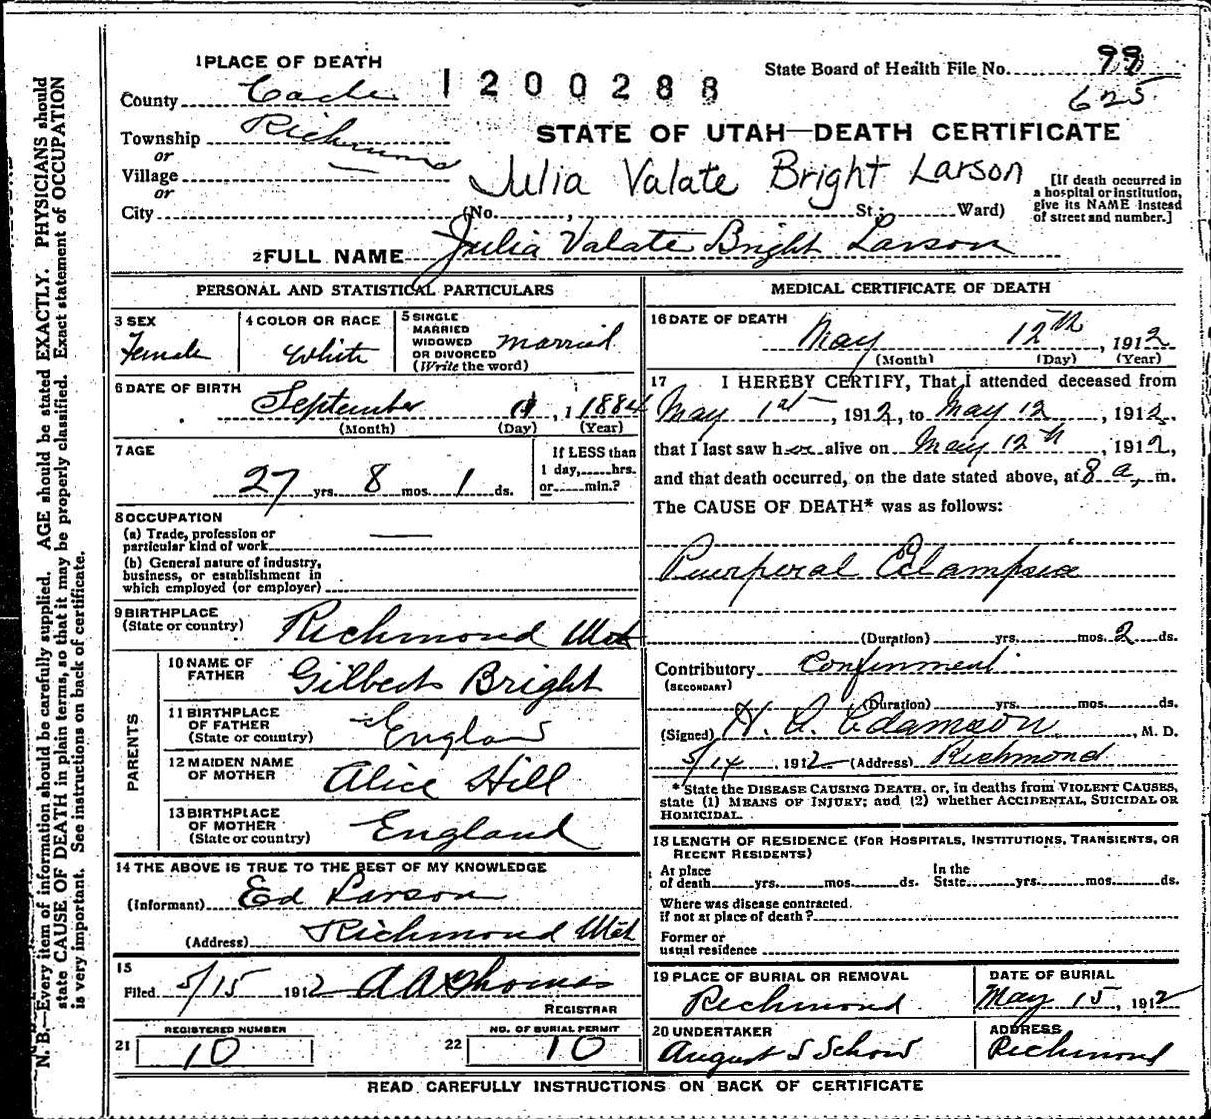 1 PLACE OF DEATH
County Cache
1200288
State Board of Health File No. 99
625
Township Richmond
or
Village
or
City
STATE OF UTAH—DEATH CERTIFICATE
Julia Valate Bright Larson
(No. , St.; Ward)
[If death occurred in
a hospital or institution,
give its NAME instead
of street and number.]
2 FULL NAME Julia Valate Bright Larson
PERSONAL AND STATISTICAL PARTICULARS
3 SEX
Female
4 COLOR OR RACE
White
5 SINGLE
MARRIED
WIDOWED
OR DIVORCED
(Write the word)
married
6 DATE OF BIRTH
September 11, 1 1884
(Month) (Day) (Year)
7 AGE
27 yrs. 8 mos. 1 ds.
If LESS than
1 day, hrs.
or min.?
8 OCCUPATION
(a) Trade, profession or
particular kind of work
(b) General nature of industry,
business, or establishment in
which employed (or employer)
9 BIRTHPLACE
(State or country) Richmond Utah
PARENTS
10 NAME OF
FATHER Gilbert Bright
11 BIRTHPLACE
OF FATHER
(State or country) England
12 MAIDEN NAME
OF MOTHER Alice Hill
13 BIRTHPLACE
OF MOTHER
(State or country) England
14 THE ABOVE IS TRUE TO THE BEST OF MY KNOWLEDGE
(Informant) Ed Larson
(Address) Richmond Utah
15
Filed 5/15 1912 A A Thomas
REGISTRAR
REGISTERED NUMBER
21 10
NO. OF BURIAL PERMIT
22 10
MEDICAL CERTIFICATE OF DEATH
16 DATE OF DEATH
May 12th, 1912
(Month) (Day) (Year)
17 I HEREBY CERTIFY, That I attended deceased from
May 1st, 1912, to May 12, 1912,
that I last saw her alive on May 12th, 1912,
and that death occurred, on the date stated above, at 8 a. m.
The CAUSE OF DEATH* was as follows:
Puerperal Eclampsia
(Duration) yrs. mos. 2 ds.
Contributory Confinment
(SECONDARY)
(Duration) yrs. mos. ds.
(Signed) H. A. Adamson, M. D.
5/14, 1912 (Address) Richmond
*State the DISEASE CAUSING DEATH, or, in deaths from VIOLENT CAUSES,
state (1) MEANS OF INJURY; and (2) whether ACCIDENTAL, SUICIDAL OR
HOMICIDAL.
18 LENGTH OF RESIDENCE (FOR HOSPITALS, INSTITUTIONS, TRANSIENTS, OR
RECENT RESIDENTS)
At place
of death yrs. mos. ds.
In the
State yrs. mos. ds.
Where was disease contracted
if not at place of death?
Former or
usual residence
19 PLACE OF BURIAL OR REMOVAL
Richmond
DATE OF BURIAL
May 15, 1912
20 UNDERTAKER
August S Schow
ADDRESS
Richmond
READ CAREFULLY INSTRUCTIONS ON BACK OF CERTIFICATE
N. B.—Every item of information should be carefully supplied. AGE should be stated EXACTLY. PHYSICIANS should
state CAUSE OF DEATH in plain terms, so that it may be properly classified. Exact statement of OCCUPATION
is very important. See instructions on back of certificate.